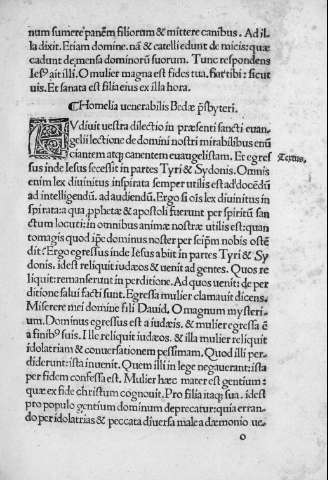 num sumere panē̄m filiorum & mittere canibus. Ad il
la dixit. Etiam domine. nā & catelli edunt de micis: quæ
cadunt de mensa dominorū suorum. Tunc respondens
Iesus ait illi. O mulier magna est fides tua. fiat tibi: sicut
uis. Et sanata est filia eius ex illa hora.
¶ Homelia uenerabilis Bedæ p̄sbyteri.
AVdiuit uestra dilectio in præsenti sancti euan
gelii lectione de domini nostri mirabilibus enū
ciantem atq; canentem euangelistam. Et egres
sus inde Iesus secessit in partes Tyri & Sydonis. Omnis
enim lex diuinitus inspirata semper utilis est ad docēdū
ad intelligendū. ad audiendū. Ergo si oīs lex diuinitus in
spirata: a qua pphetæ & apostoli fuerunt per spiritū san
ctum locuti: in omnibus animæ nostræ utilis est: quan
to magis quod ipse dominus noster per seipm̄ nobis ostē
dit? Ergo egressus inde Iesus abiit in partes Tyri & Sy
donis. idest reliquit iudæos & uenit ad gentes. Quos re
liquit: remanserunt in perditione. Ad quos uenit: de per
ditione salui facti sunt. Egressa mulier clamauit dicens.
Miserere mei domine fili Dauid. O magnum mysteri
um. Dominus egressus est a iudæis. & mulier egressa ē
a finibꝰ suis. Ille reliquit iudæos. & illa mulier reliquit
idolatriam & conuersationem pessimam. Quod illi per
diderunt: ista inuenit. Quem illi in lege negauerunt: ista
per fidem confessa est. Mulier hæc mater est gentium:
quæ ex fide christum cognouit. Pro filia itaq; sua. idest
pro populo gentium dominum deprecatur: quia erran
do per idolatrias & peccata diuersa male a dæmonio ue
Textus,
o